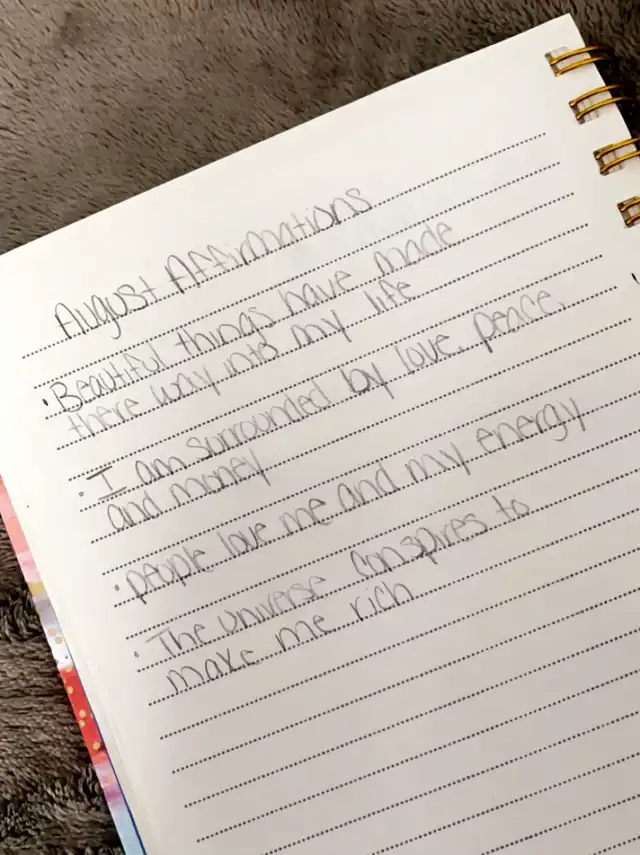 August Affirmations
• Beautiful things have made
there way into my life
• I am surrounded by love, peace,
and money
• people love me and my energy
• The universe conspires to
make me rich